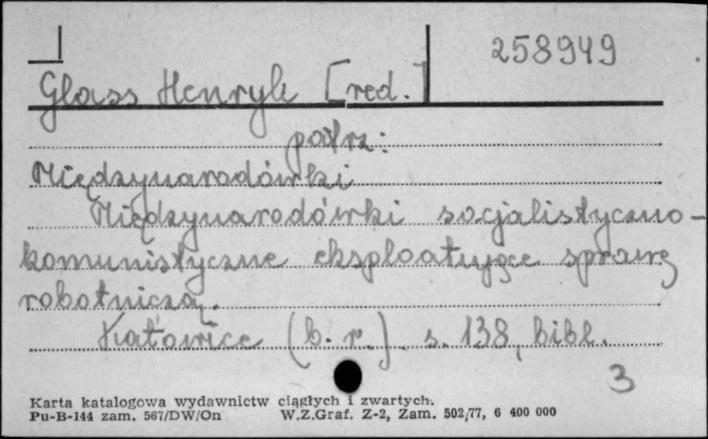 258949
Glass Henryk [red.]
patrz:
Międzynarodówki
Międzynarodówki socjalistyczno-
komunistyczne eksploatujące sprawę
robotniczą.
Katowice (b. r.). s. 138, bibl.
3
Karta katalogowa wydawnictw ciągłych i zwartych.
Pu-B-144 zam. 567/DW/On W.Z.Graf. Z-2, Zam. 502/77, 6 400 000